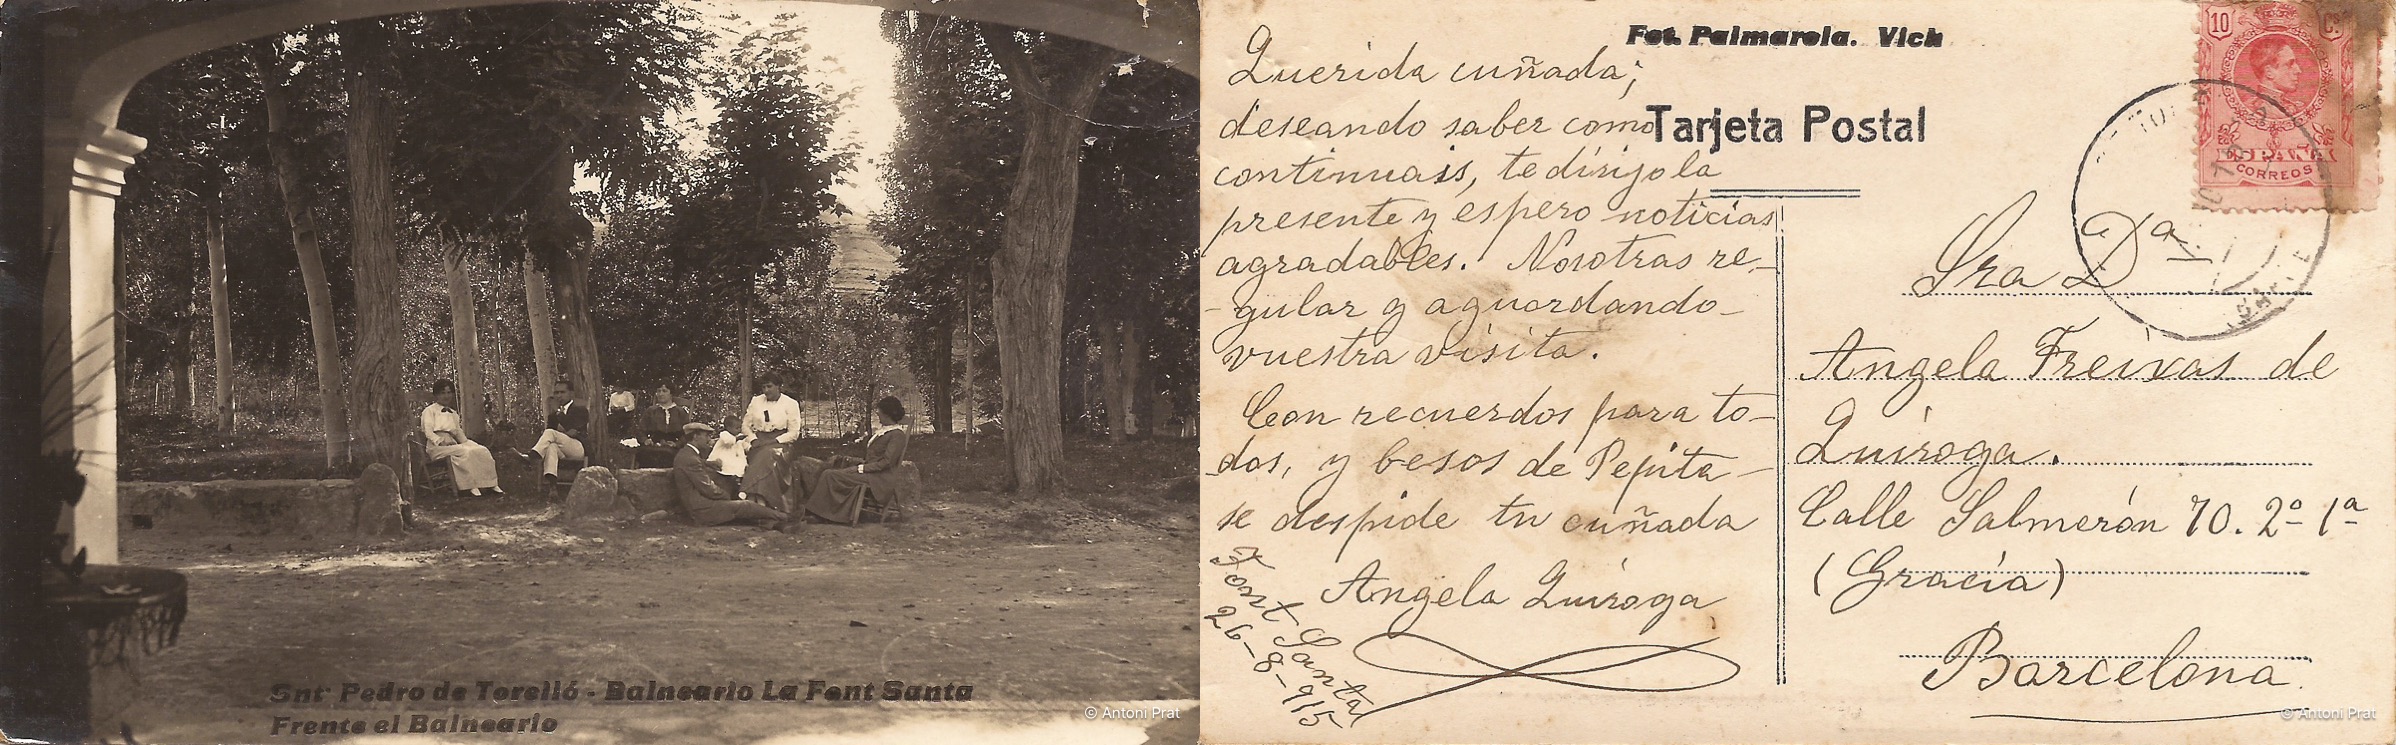 Snt Pedro de Torelló - Balneario La Font Santa
Frente el Balneario
© Antoni Prat
Fot. Palmarola. Vich
Tarjeta Postal
10 Cs
ESPAÑA
CORREOS
Querida cuñada;
deseando saber como
continuais, te dirijo la
presente y espero noticias
agradables. Nosotras re-
-gular y aguardando
vuestra visita.
Con recuerdos para to-
dos, y besos de Pepita
se despide tu cuñada
Angela Quiroga
Font Santa
26-8-915
Sra Dª
Angela Freixas de
Quiroga.
Calle Salmerón 70. 2º 1ª
(Gracia)
Barcelona
© Antoni Prat